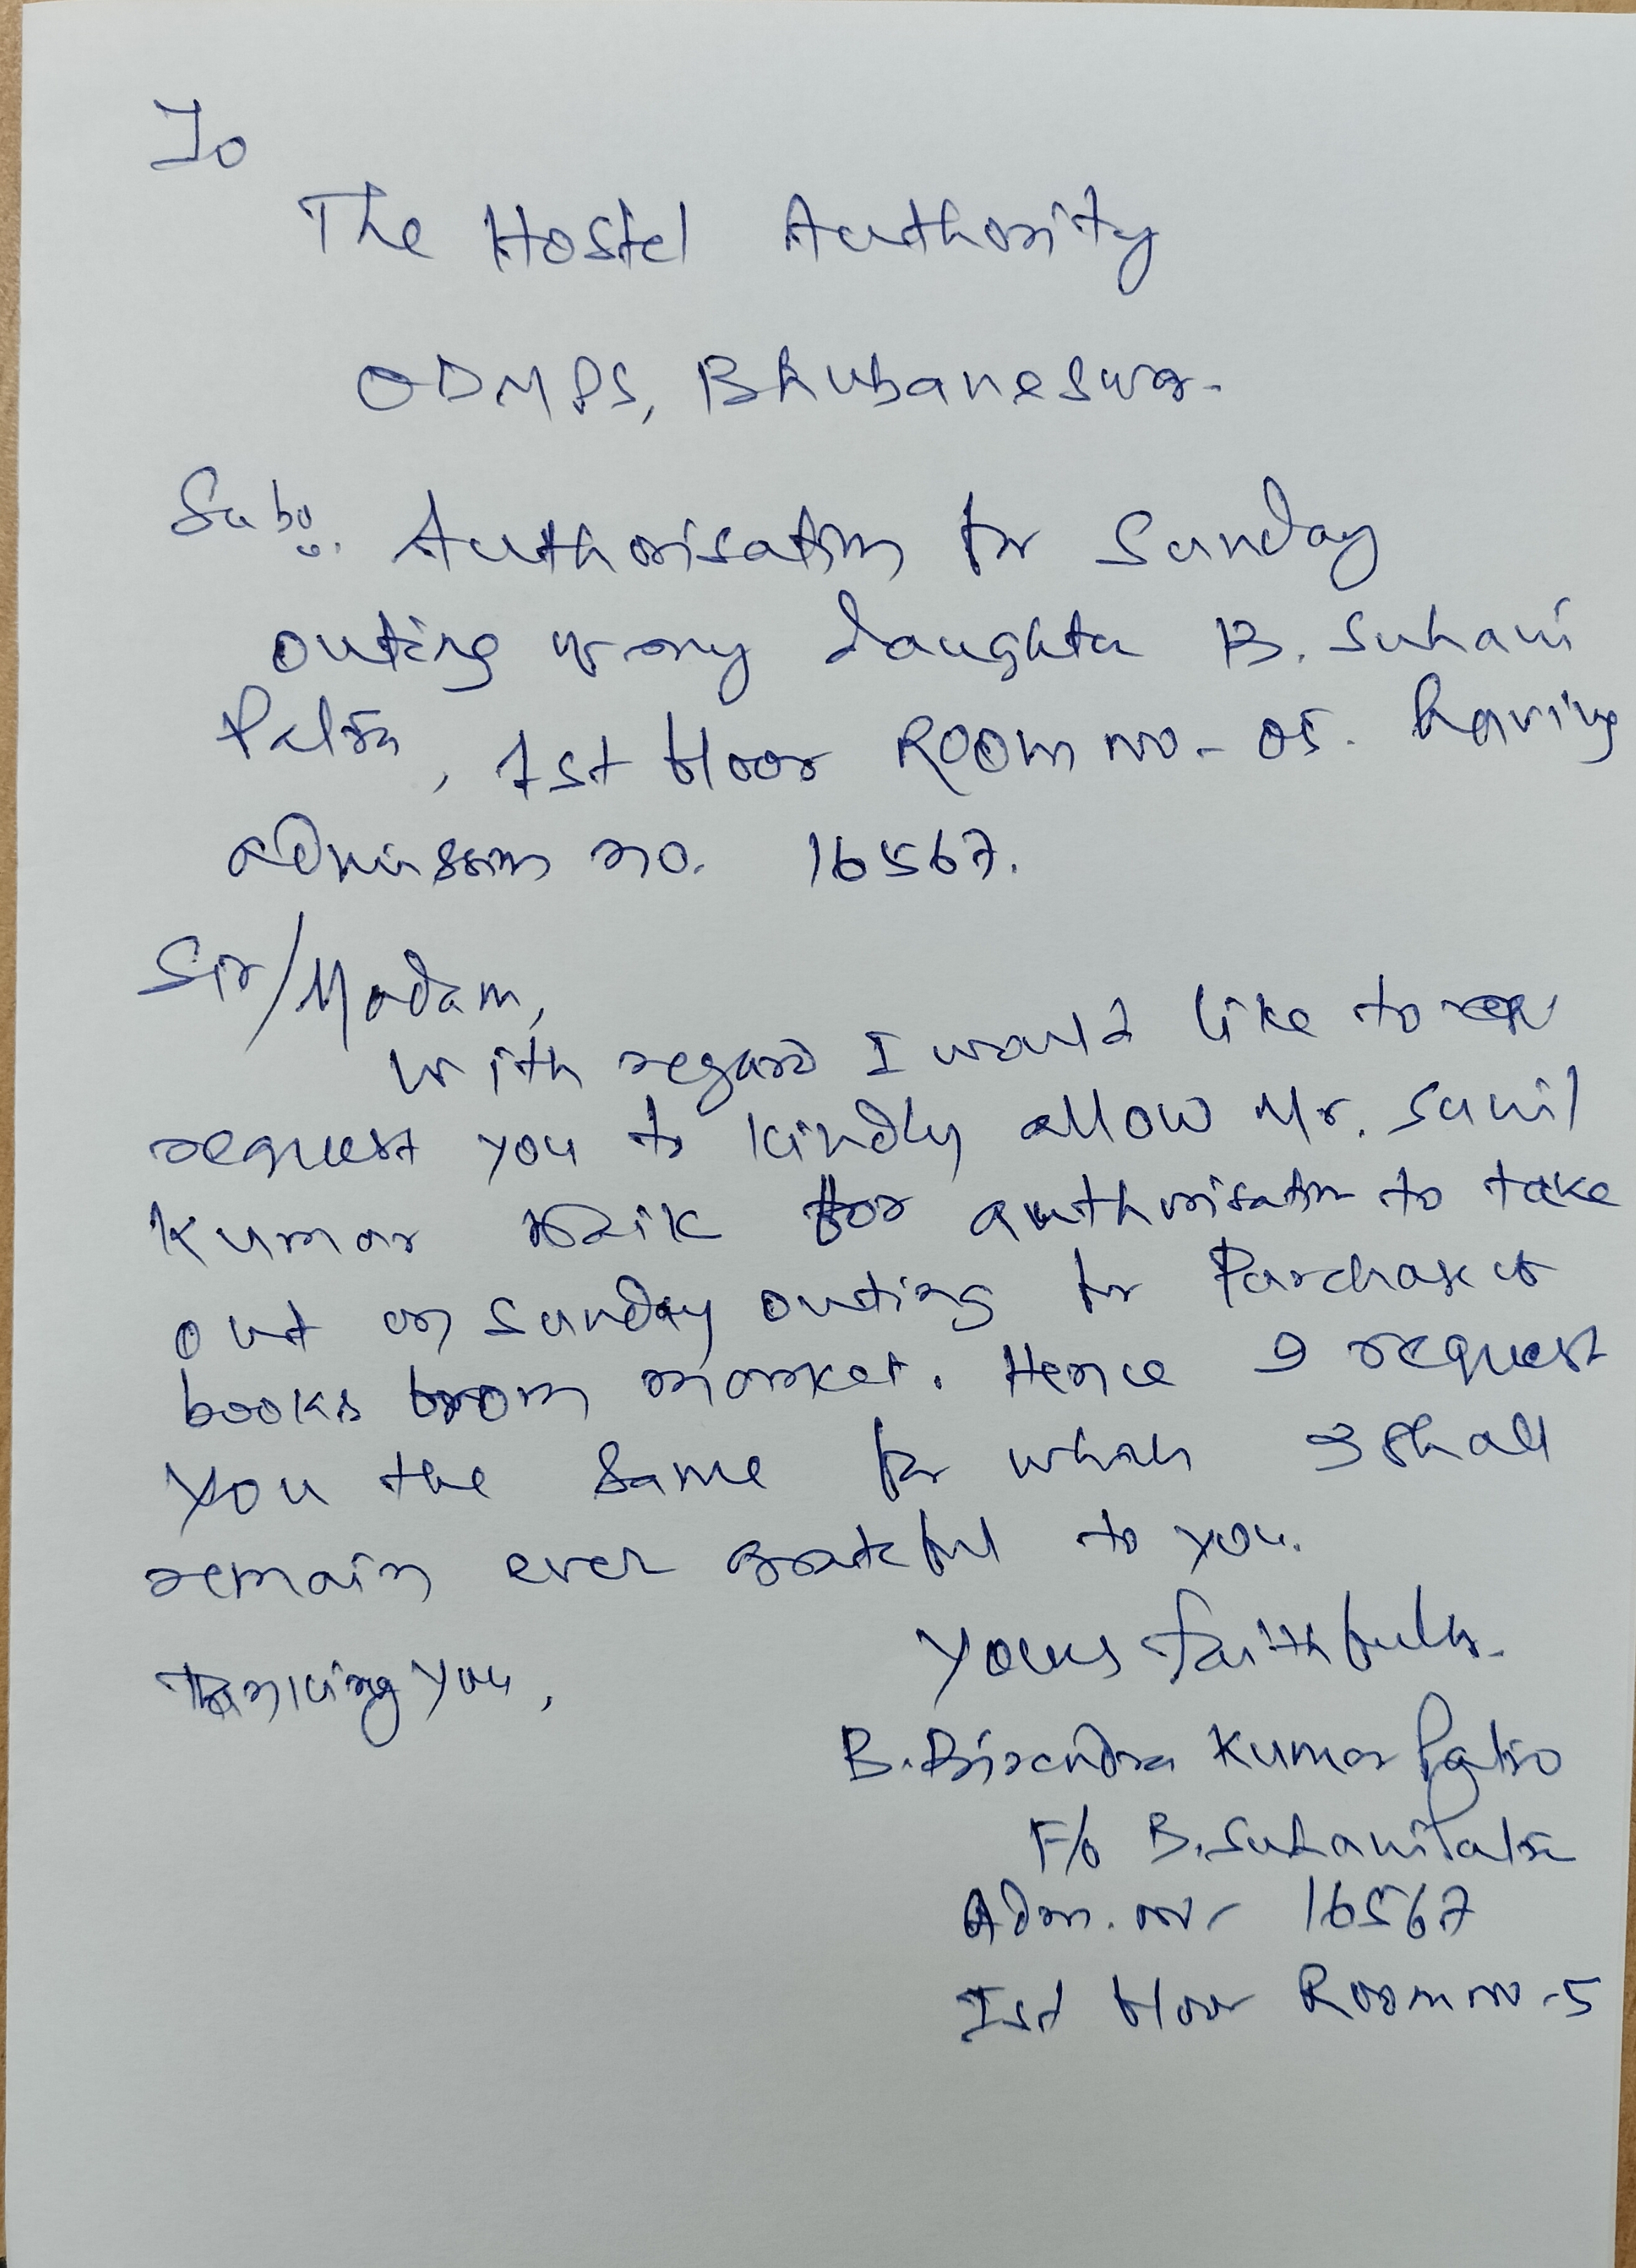 To
The Hostel Authority
ODMPS, Bhubaneswar.
Sub:. Authorisation for Sunday
outing of my daughter B. Suhani
Patra, 1st floor Room no - 05. having
admission no. 16567.
Sir/Madam,
With regard I would like to
request you to kindly allow Mr. Sunil
Kumar Naik for authorisation to take
out on Sunday outing for Purchase of
books from market. Hence I request
you the same for which I shall
remain ever grateful to you.
Yours faithfully.
Thanking you,
B. Birendra Kumar Patro
F/o B. Suhani Patra
Adm. no - 16567
Ist floor Room no - 5